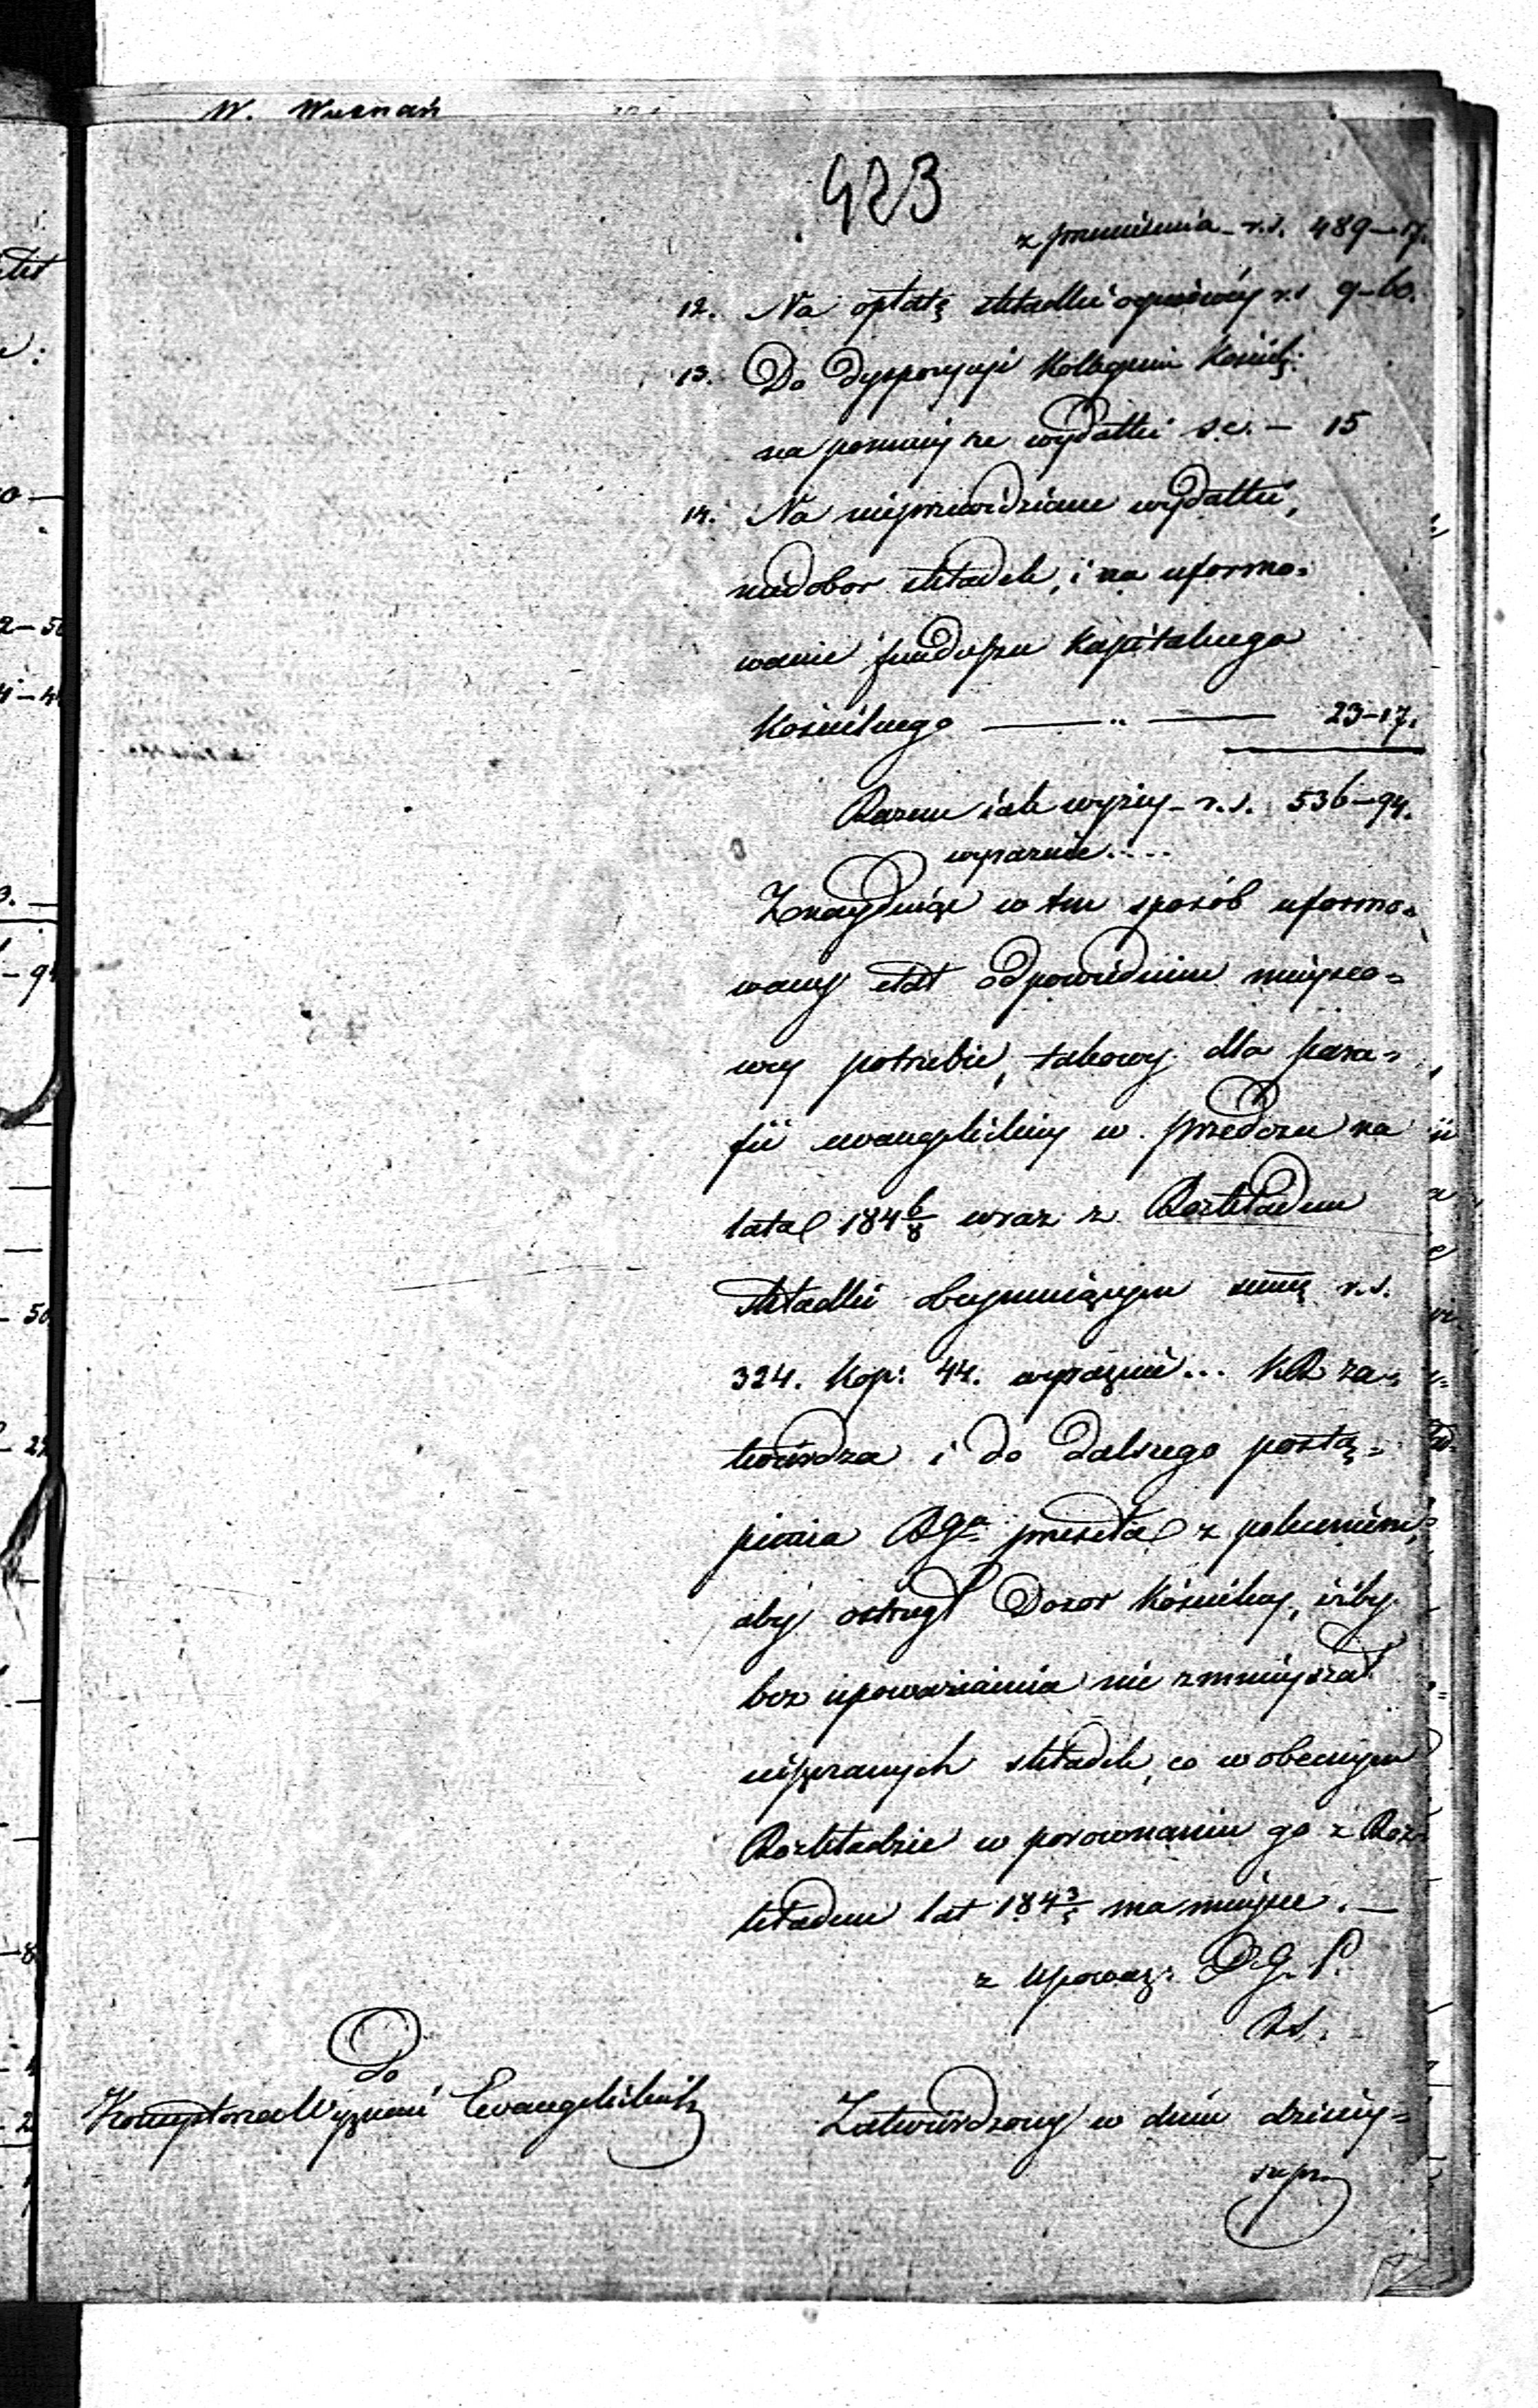 W. Wyznań
423
z przeniesienia - r.s. 489-17.
12. Na opłatę składki ogniowéy r.s 9-60.
13. Do dyspozycyi Kollegium Kościel:
na pomnieysze wydatki s.c. - 15
14. Na nieprzewidziane wydatki,
niedobor składek, i na uformo=
wanie funduszu Kapitalnego
Kościelnego — " — 23-17.
Razem iak wyżey - r.s. 536-94.
wyraznie....
Znayduiąc w ten sposób uformo=
wany etat odpowiednim mieysco=
wey potrzebie, takowy dla para=
fii ewangelickiey w Przedczu na
lata 184 6/8 wraz z Rozkładem
składki obeymuiącym summę r.s.
324. Kop: 44. wyraźnie... KR za=
twierdza i do dalszego postą=
pienia RGu przeseła z poleceniem,
aby ostrzegł Dozor Kościelny, iżby
bez upoważnienia nie zmnieyszał
wypranych składek, co w obecnym
Rozkładzie w porownaniu go z Roz
kładem lat 184 3/5 ma mieysce. —
z upoważ: D.G. P.
Do
Konsystorza Wyznań Ewangelickich
Zatwierdzony w dniu dzisiey=
szym